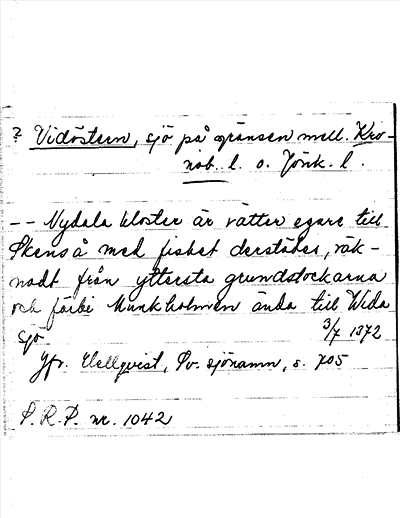 ? Vidöstern, sjö på gränsen mell. Kro-
nob. l. o. Jönk. l.
-- Nydala kloster är rätter egare till
Økens å med fisket derstädes, räk-
nadt från yttersta grundstockarna
och förbi Munkholmen ända till Wida
sjö 3/7 1372
Jfr. Hellqvist, Sv. sjönamn, s. 705
S.R.P. nr. 1042